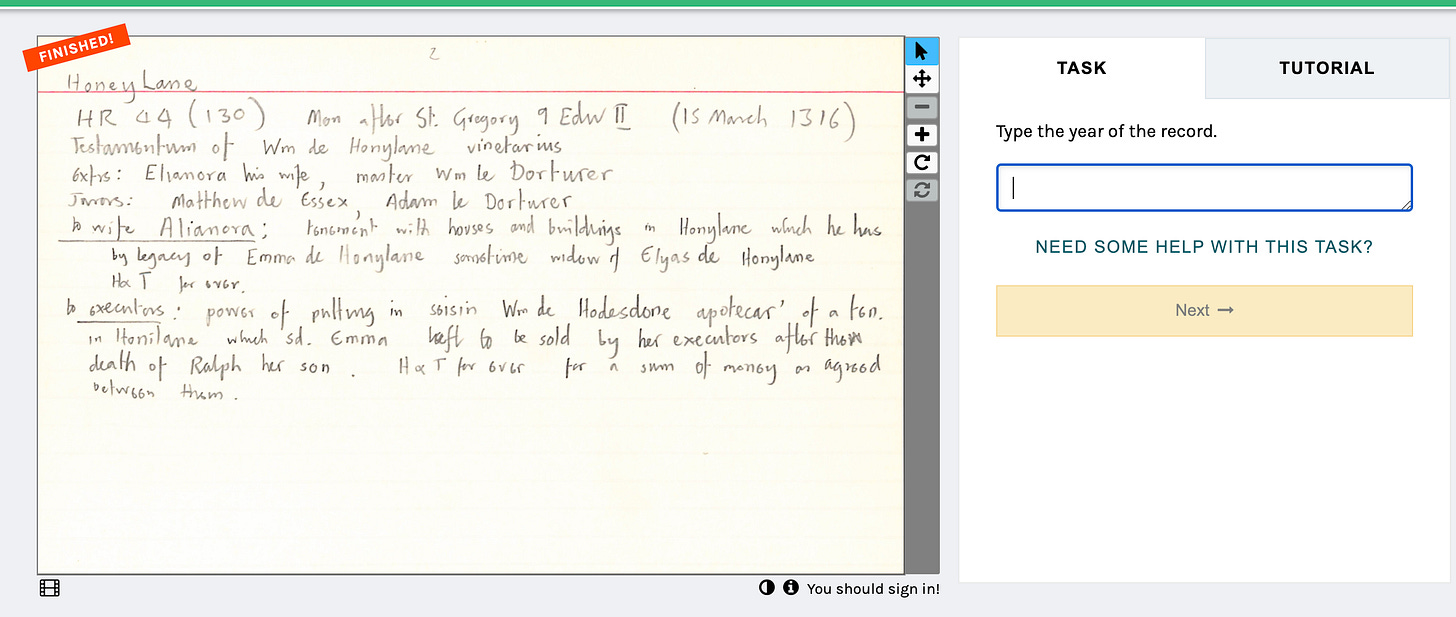 FINISHED!
2
Honey Lane
HR 44 (130) Mon after St. Gregory 9 Edw II (15 March 1316)
Testamentum of Wm de Honylane vinetarius
extrs: Elianora his wife, master Wm le Dorturer
Jurors: Matthew de Essex, Adam le Dorturer
to wife Alianora; tenement with houses and buildings in Honylane which he has
by legacy of Emma de Honylane sometime widow of Elyas de Honylane
H & T for ever.
to executors: power of putting in seisin Wm de Hodesdone apotecar' of a ten.
in Honilane which sd. Emma left to be sold by her executors after
death of Ralph her son. H & T for ever for a sum of money as agreed
between them.
TASK
TUTORIAL
Type the year of the record.
NEED SOME HELP WITH THIS TASK?
Next →
You should sign in!